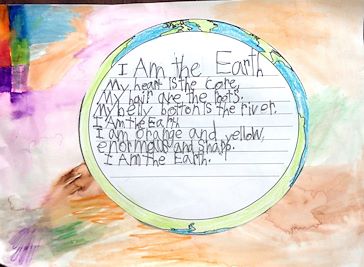 I Am the Earth
My heart is the core,
My hair are the roots.
My belly botton is the river.
I Am the Earth
I am orange and yellow,
enormous and snapp.
I Am the Earth.